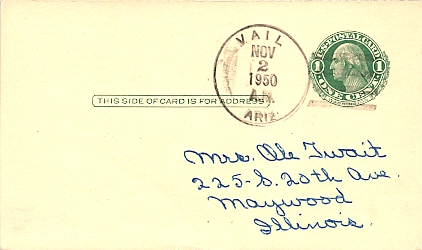 VAIL
NOV
2
1950
A.M.
ARIZ
U.S. POSTAL CARD
1 1
ONE CENT
THIS SIDE OF CARD IS FOR ADDRESS
Mrs. Ole Twait
225-S. 20th Ave.
Maywood
Illinois.